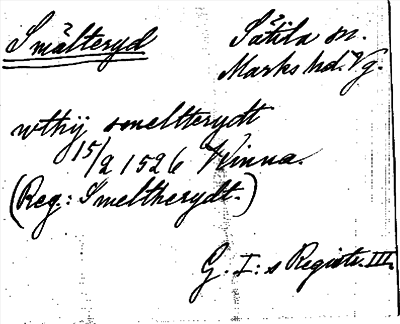 Smälteryd
Sätila sn.
Marks hd. Vg.
wthij smelterydt
15/2 1526 Kinna.
(Reg.: Smeltherydt.)
G. I:s Registr. III.